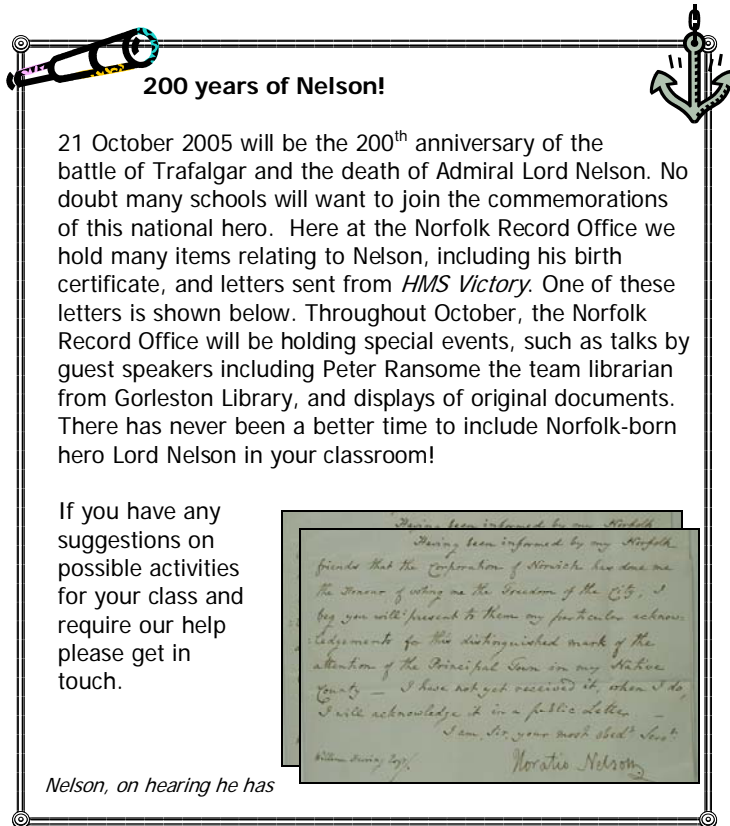 200 years of Nelson!
21 October 2005 will be the 200th anniversary of the
battle of Trafalgar and the death of Admiral Lord Nelson. No
doubt many schools will want to join the commemorations
of this national hero. Here at the Norfolk Record Office we
hold many items relating to Nelson, including his birth
certificate, and letters sent from HMS Victory. One of these
letters is shown below. Throughout October, the Norfolk
Record Office will be holding special events, such as talks by
guest speakers including Peter Ransome the team librarian
from Gorleston Library, and displays of original documents.
There has never been a better time to include Norfolk-born
hero Lord Nelson in your classroom!
If you have any
suggestions on
possible activities
for your class and
require our help
please get in
touch.
Having been informed by my Norfolk
Having been informed by my Norfolk
friends that the Corporation of Norwich has done me
the Honour of voting me the Freedom of the City, I
beg you will present to them my particular acknow-
:ledgements for this distinguished mark of the
attention of the Principal Town in my Native
County — I have not yet received it, when I do,
I will acknowledge it in a public Letter —
I am, Sir, your most obedt. Servt.
William Esqr.
Horatio Nelson
Nelson, on hearing he has